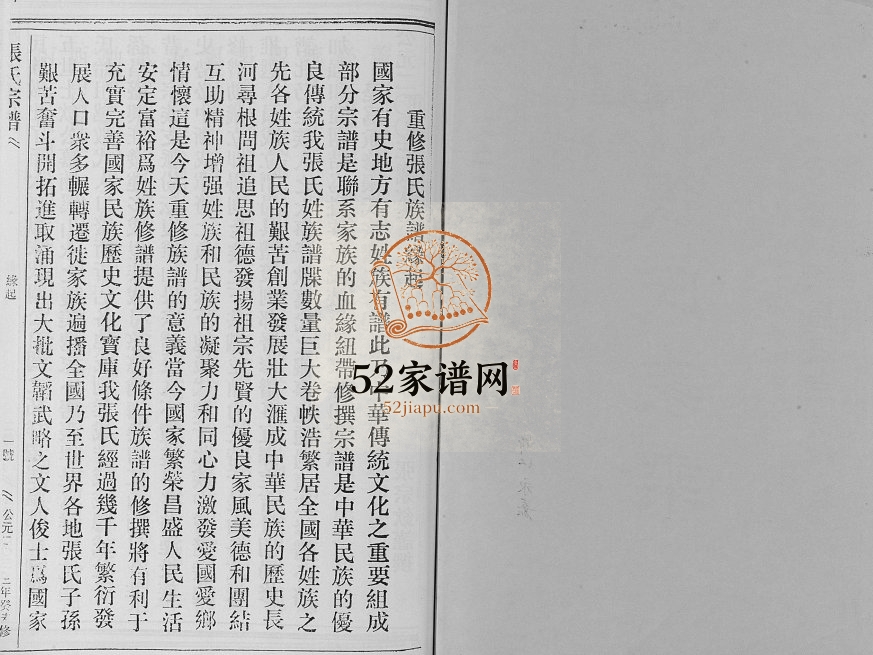 重修張氏族譜緣起
國家有史地方有志姓族有譜此乃中華傳統文化之重要組成
部分宗譜是聯系家族的血緣紐帶修撰宗譜是中華民族的優
良傳統我張氏姓族譜牒數量巨大卷帙浩繁居全國各姓族之
先各姓族人民的艱苦創業發展壯大滙成中華民族的歷史長
河尋根問祖追思祖德發揚祖宗先賢的優良家風美德和團結
互助精神增强姓族和民族的凝聚力和同心力激發愛國愛鄉
情懷這是今天重修族譜的意義當今國家繁榮昌盛人民生活
安定富裕爲姓族修譜提供了良好條件族譜的修撰將有利于
充實完善國家民族歷史文化寶庫我張氏經過幾千年繁衍發
展人口衆多輾轉遷徙家族遍播全國乃至世界各地張氏子孫
艱苦奮斗開拓進取涌現出大批文韜武略之文人俊士爲國家
張氏宗譜
緣起
一號
公元
年癸 修
52家谱网
52jiapu.com